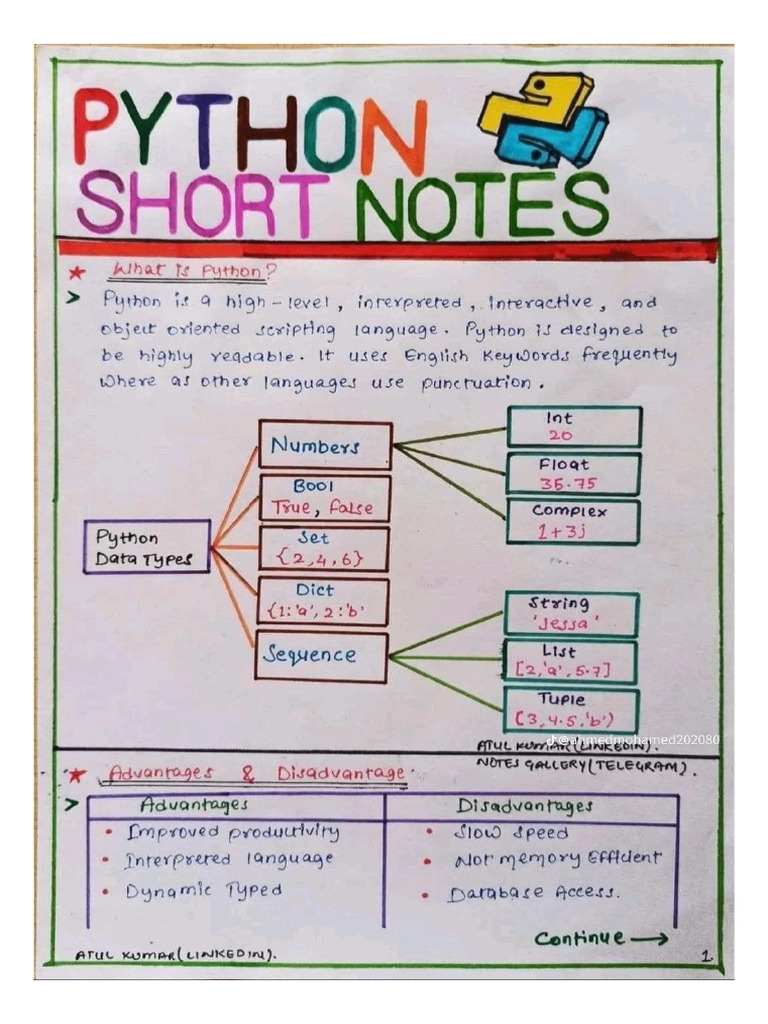 PYTHON
SHORT NOTES
What is Python?
Python is a high-level, interpreted, interactive, and
object oriented scripting language. Python is designed to
be highly readable. It uses English Keywords frequently
Where as other languages use punctuation.
Python
Data Types
Numbers
Bool
True, False
Set
{2,4,6}
Dict
{1:'a', 2:'b'
Sequence
Int
20
Float
35.75
Complex
1+3j
String
'Jessa'
List
[2,'a',5.7]
Tuple
(3,4.5,'b')
@ahmedmohamed202080
ATUL KUMAR(LINKEDIN).
NOTES GALLERY(TELEGRAM).
Advantages & Disadvantage
Advantages
Disadvantages
Improved productivity
Slow speed
Interpreted language
Not memory Efficient
Dynamic Typed
Database Access.
Continue →
ATUL KUMAR(LINKEDIN).
1